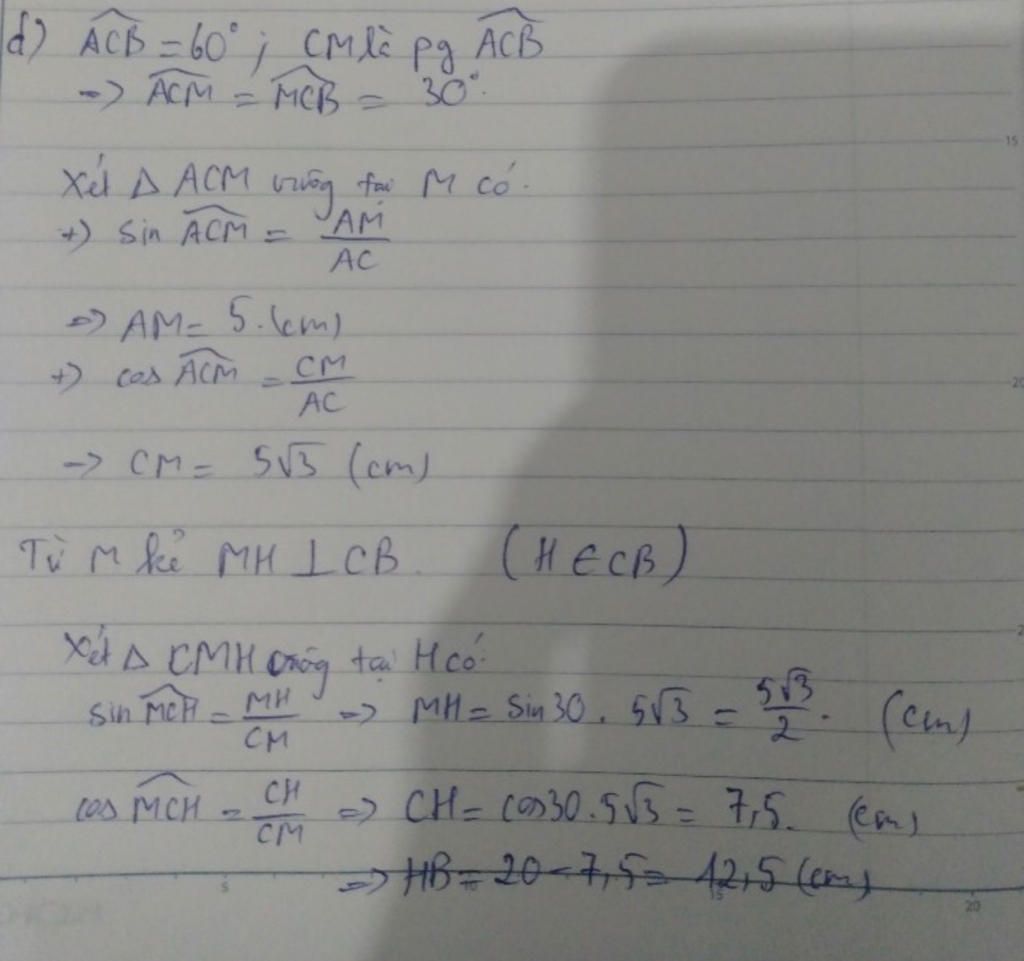 d) ACB = 60°; CM là pg ACB
=> ACM = MCB = 30°.
Xét Δ ACM vuông tại M có.
+) sin ACM = AM/AC
=> AM = 5. (cm)
+) cos ACM = CM/AC
=> CM = 5√3 (cm)
Từ M kẻ MH ⊥ CB. (H ∈ CB)
Xét Δ CMH vuông tại H có:
sin MCH = MH/CM => MH = sin30 . 5√3 = 5√3/2. (cm)
cos MCH = CH/CM => CH = cos30.5√3 = 7,5. (cm)
=> HB = 20 - 7,5 = 12,5 (cm)
15
20
2
5
10
15
20